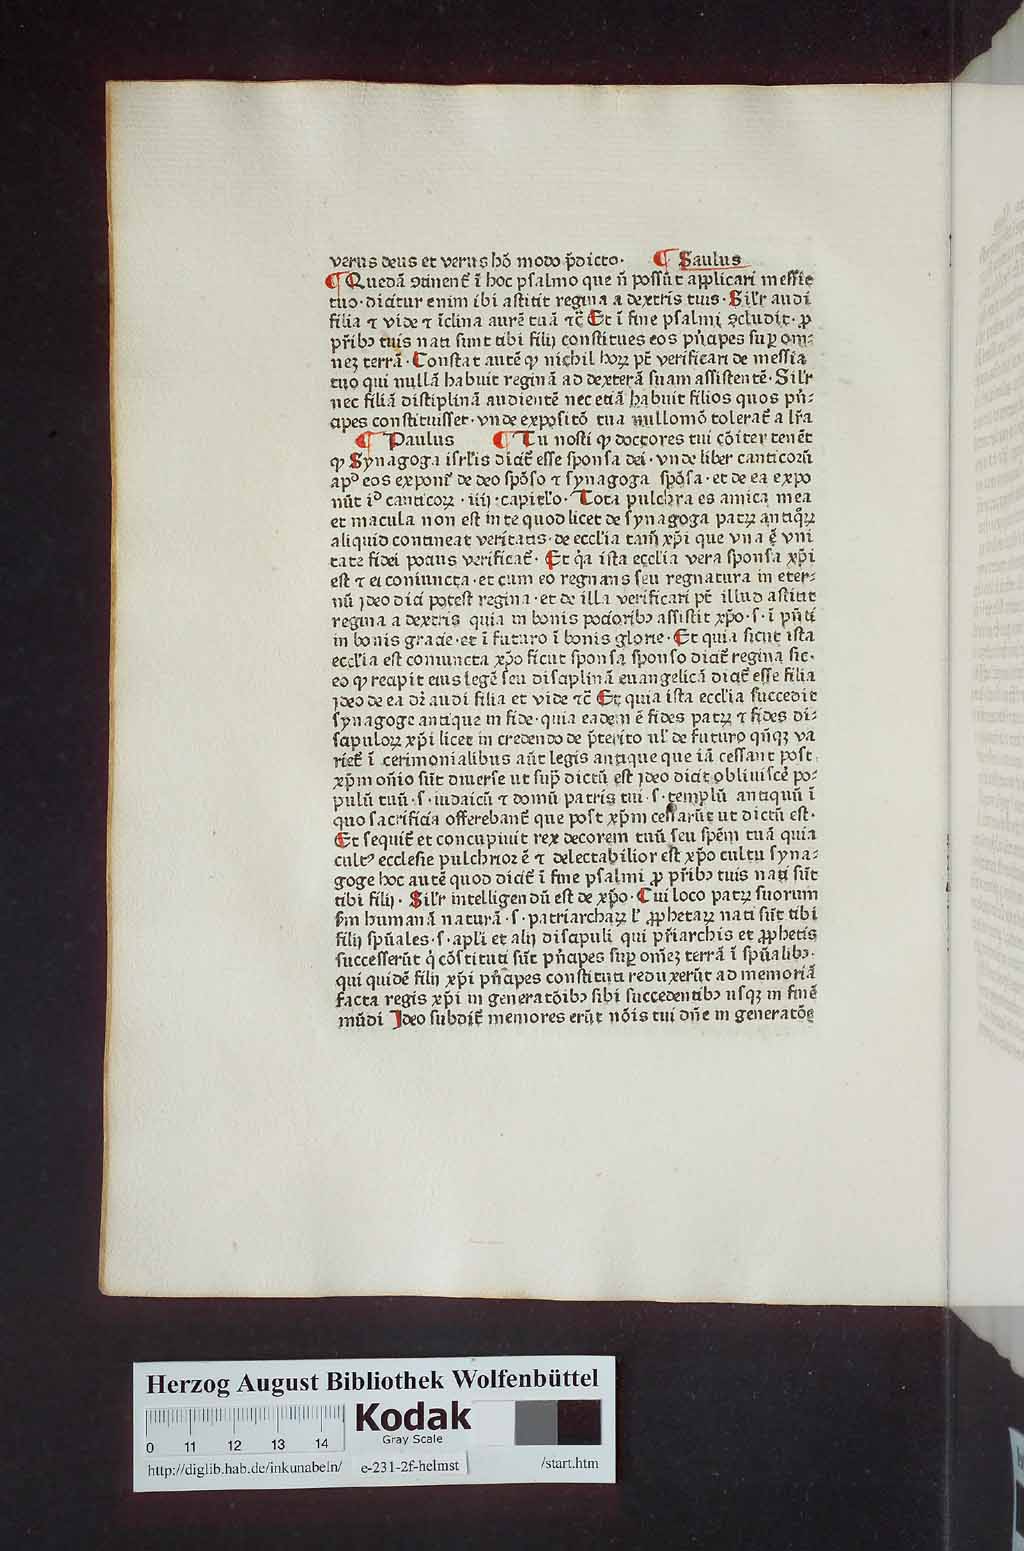 verus deus et verus hō modo p̄dicto· ¶ Saulus
¶ Quedā ꝯtinent᷑ ī hoc psalmo que n̄ possūt applicari messie
tuo· dicitur enim ibi astitit regina a dextris tuis· Sil'r audi
filia ⁊ vide ⁊ īclina aurē tuā ⁊c̄ Et ī fine psalmi ꝯcludit· ꝓ
pr̄ibꝰ tuis nati sunt tibi filij constitues eos pn̄cipes suꝑ om⸗
neꝫ terrā· Constat autē ꝙ nichil hoꝝ pt̄ verificari de messia
tuo qui nullā habuit reginā ad dexterā suam assistentē· Sil'r
nec filiā disciplinā audientē nec etiā habuit filios quos pn̄⸗
cipes constituisset· vnde expositō tua nullomō tolerat᷑ a lr̄a
¶ Paulus ¶ Tu nosti ꝙ doctores tui cōiter tenēt
ꝙ Synagoga isrl'is dicit᷑ esse sponsa dei· vnde liber canticorū
apꝰ eos exponit᷑ de deo spōso ⁊ synagoga spōsa· et de ea expo
nūt iꝰ canticoꝝ ·iiij· capitl'o· Tota pulchra es amica mea
et macula non est in te quod licet de synagoga patꝝ antiqͦꝝ
aliquid contineat veritatis· de eccl'ia tam̄ xp̄i que vna ē vni
tate fidei potius verificat᷑· Et qͣa ista eccl'ia vera sponsa xp̄i
est ⁊ ei coniuncta· et cum eo regnans seu regnatura in eter⸗
nū jdeo dici potest regina· et de illa verificari pt̄ illud astitit
regina a dextris quia in bonis pocioribꝰ assistit xp̄o· s· ī pn̄ti
in bonis gracie· et ī futuro ī bonis glorie· Et quia sicut ista
eccl'ia est coniuncta xp̄o sicut sponsa sponso dicit᷑ regina sic·
eo ꝙ recipit eius legē seu disciplinā euangelicā dicit᷑ esse filia
jdeo de ea dr̄ audi filia et vide ⁊c̄ Et quia ista eccl'ia succedit
synagoge antique in fide· quia eadem ē fides patꝝ ⁊ fides di⸗
sciploꝝ xp̄i licet in credendo de p̄terito ul' de futuro qn̄qꝫ va
riet᷑ ī cerimonialibus aūt legis antique que iā cessant post
xp̄m om̄io sūt diuerse ut supͣ dictū est jdeo dicit obliuiscē po⸗
pulū tuū· s· iudaicū ⁊ domū patris tui· s· templū antiquū ī
quo sacrificia offerebant᷑ que post xp̄m cessarūt ut dictū est·
Et sequit᷑ et concupiuit rex decorem tuū seu spēm tuā quia
cultꝰ ecclesie pulchrior ē ⁊ delectabilior est xp̄o cultu syna⸗
goge hoc autē quod dicit᷑ ī fine psalmi ꝓ pr̄ibꝰ tuis nati sūt
tibi filij· Sil'r intelligendū est de xp̄o· Cui loco patꝝ suorum
scd̄m humanā naturā· s· patriarchaꝝ l' ꝓphetaꝝ nati sūt tibi
filij spūales· s· apl'i et alij discipuli qui pr̄iarchis et ꝓphetis
successerūt qͥ cōstituti sūt pn̄cipes suꝑ om̄eꝫ terrā ī spūalibꝰ·
qui quidē filij xp̄i pn̄cipes constituti reduxerūt ad memoriā
facta regis xp̄i in generatōibꝰ sibi succedentibꝰ usqꝫ in finē
mūdi Jdeo subdit᷑ memores erūt nōis tui dn̄e in generatōe
Herzog August Bibliothek Wolfenbüttel
Kodak
Gray Scale
0 11 12 13 14
http://diglib.hab.de/inkunabeln/ e-231-2f-helmst /start.htm